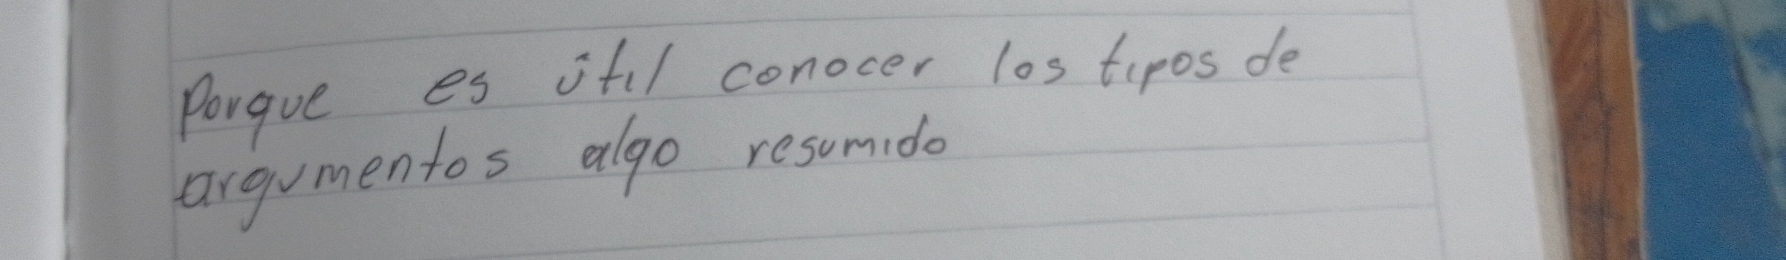 Porque es útil conocer los tipos de
argumentos algo resumido